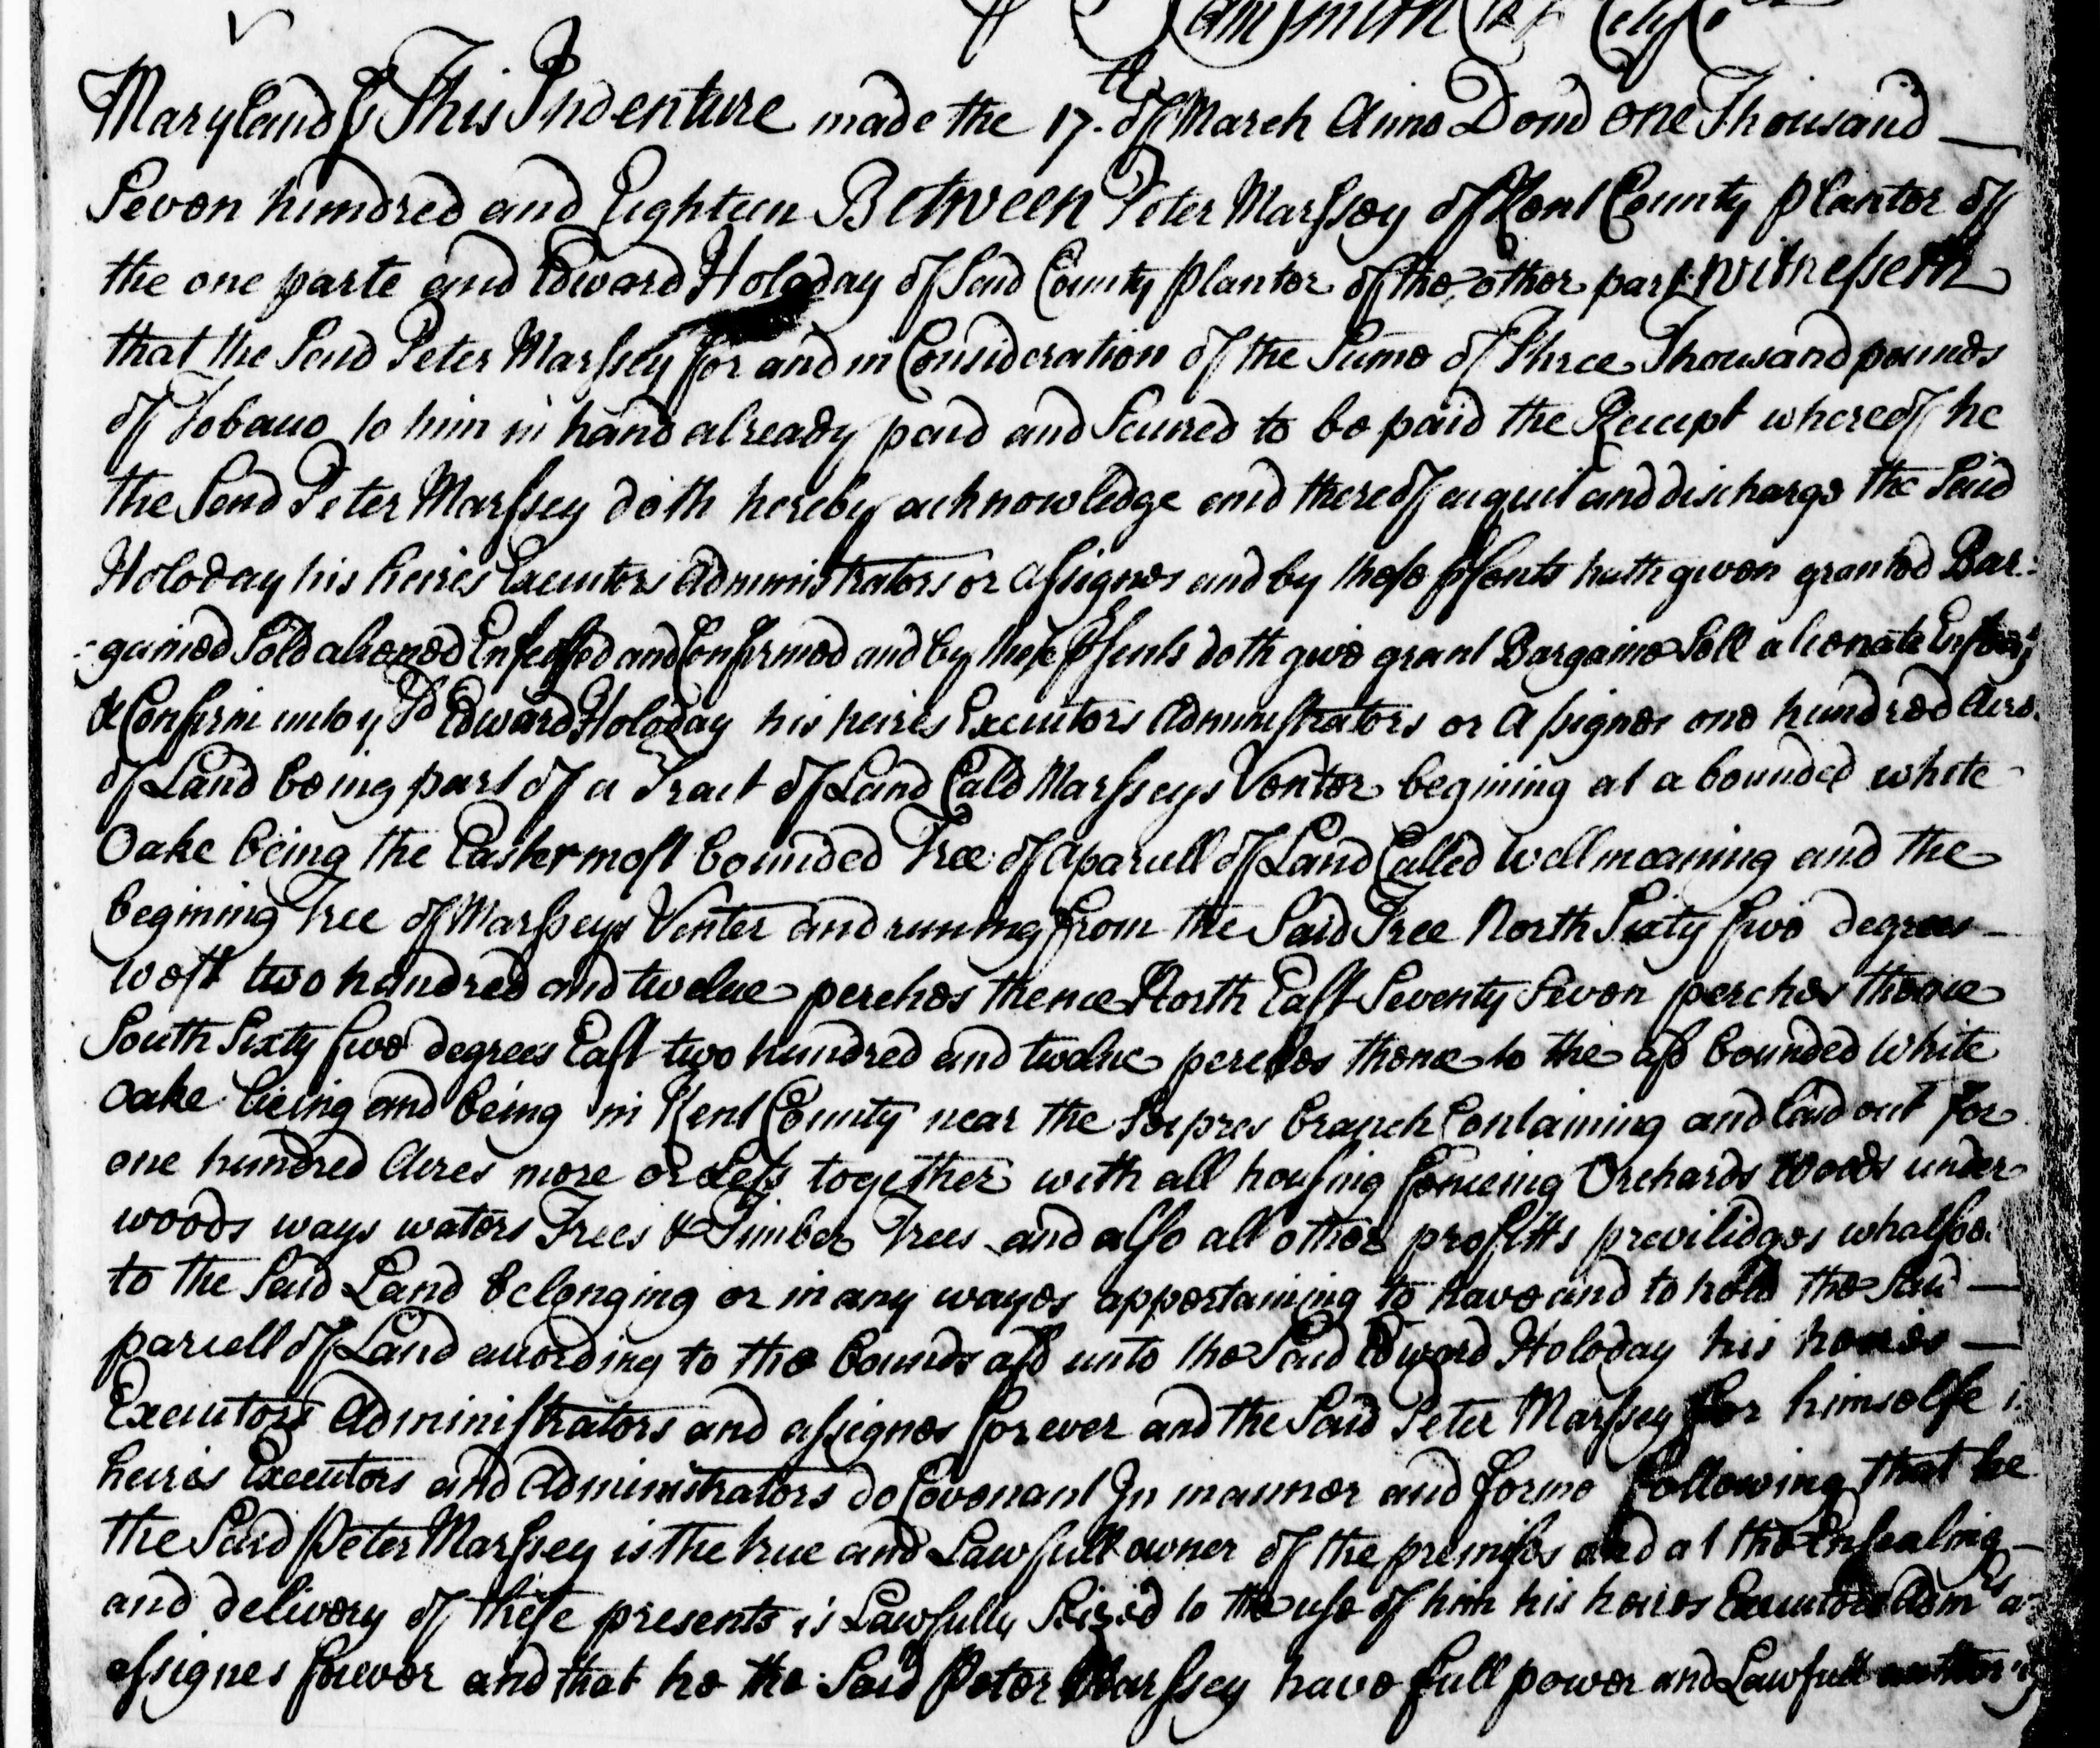 Sam Smith Clk
Maryland ss This Indenture made the 17.th of March Anno Domi one Thousand
Seven hundred and Eighteen Between Peter Marssey of Kent County Planter of
the one parte and Edward Holoday of said County Planter of the other part Witnesseth
that the Said Peter Marssey for and in Consideration of the Sume of Three Thousand pounds
of Tobacco to him in hand already paid and Secured to be paid the Receipt whereof he
the Said Peter Marssey doth hereby acknowledge and thereof acquit and discharge the Said
Holoday his heires Executors Administrators or assignes and by these psents hath given granted Bar-
-gained Sold aliened Enfeoffed and Confirmed and by these psents doth give grant Bargaine Sell alienate Enfeof
& Confirm unto ye Sd Edward Holoday his heires Executors Administrators or Assignes one hundred Acres
of Land being part of a Tract of Land Cald Marsseys Venter begining at a bounded white
Oake being the Eastermost bounded Tree of a parcell of Land Called Wellmeaning and the
begining Tree of Marsseys Venter and runing from the Said Tree North Sixty five degrees
West two hundred and twelve perches thence North East Seventy Seven perches thence
South Sixty five degrees East two hundred and twelve perches thence to the afd bounded White
oake lieing and being in Kent County near the Sypres branch Containing and laid out for
one hundred Acres more or Less together with all housing fenceing Orchards Woods under
woods ways waters Trees & Timber Trees and also all other profitts previlidges whatsoe
to the Said Land belonging or in any wayes appertaining to have and to hold the Said
parcell of Land according to the bounds afd unto the Said Edward Holoday his heires
Executors Administrators and assignes forever and the Said Peter Marssey for himselfe
heires Executors and Administrators do Covenant In manner and forme following that he
the Said Peter Marssey is the true and Lawfull owner of the premises and at the Ensealing
and delivery of these presents is Lawfully Seized to the use of him his heires Executors Admrs
assignes forever and that he the Said Peter Marssey have full power and Lawfull authority